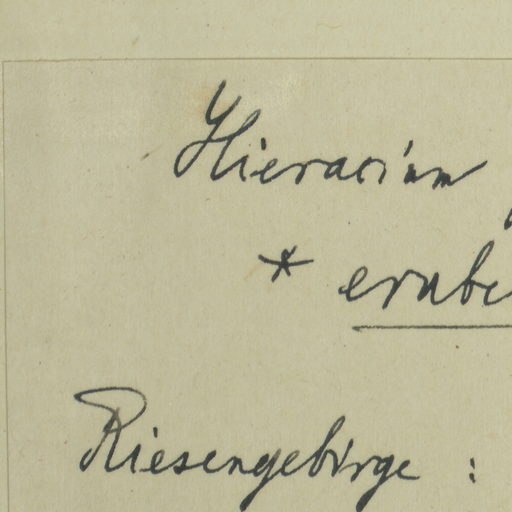 Hieracium
* erube
Riesengebirge :